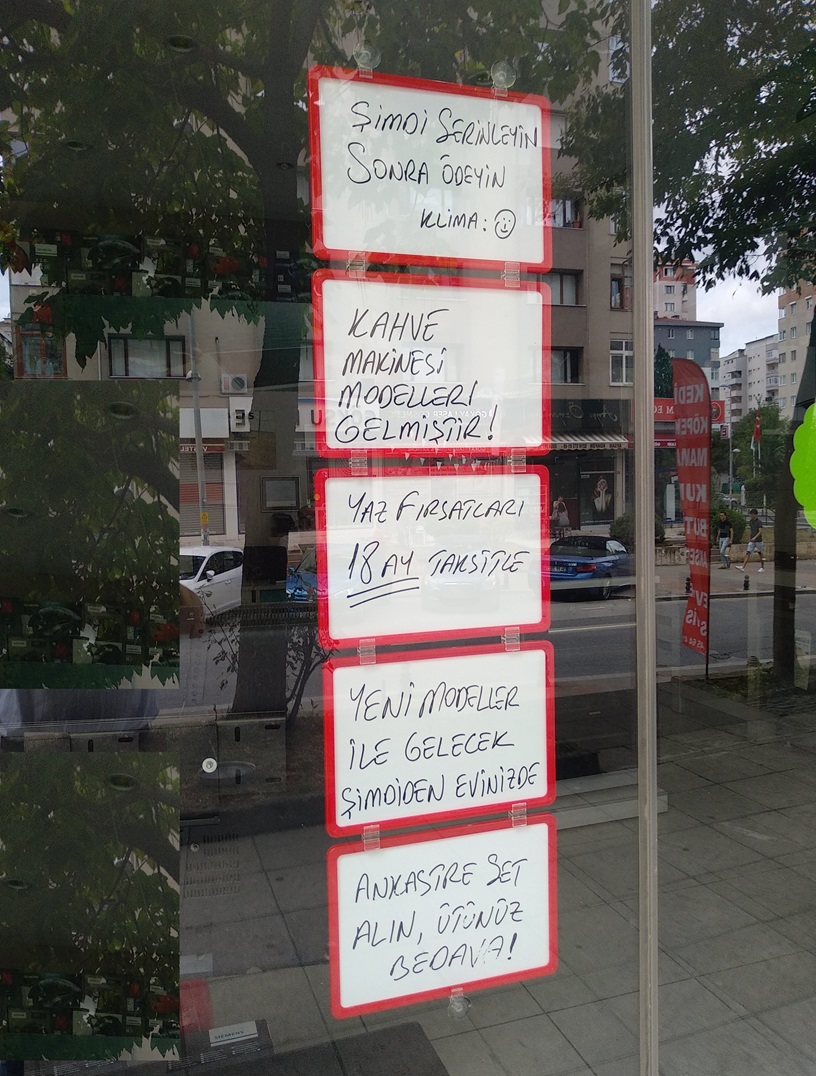 ŞİMDİ SERİNLEYİN
SONRA ÖDEYİN
KLİMA:
KAHVE
MAKİNESİ
MODELLERİ
GELMİŞTİR!
YAZ FIRSATLARI
18 AY TAKSİTLE
YENİ MODELLER
İLE GELECEK
ŞİMDİDEN EVİNİZDE
ANKASTRE SET
ALIN, ÜTÜNÜZ
BEDAVA!
SIEMENS